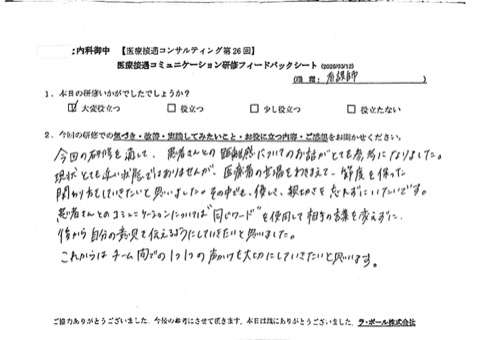 内科御中 【医療接遇コンサルティング第26回】
医療接遇コミュニケーション研修フィードバックシート (2025/03/12)
(職種: 看護師 )
1. 本日の研修いかがでしたでしょうか?
☑ 大変役立つ □ 役立つ □ 少し役立つ □ 役立たない
2. 今回の研修での気づき・改善・実践してみたいこと・お役に立つ内容・ご感想をお聞かせください。
今回の研修を通して、患者さんとの距離感についてのお話がとても参考になりました。
現状とても近い状態ではありませんが、医療者の立場をわきまえて、節度を保った
関わり方をしていきたいと思いました。その中でも、優しく、親切さを忘れずにいたいです。
患者さんとのコミュニケーションについては"同じワード"を使用して相手の言葉を変えずに、
後から自分の意見を伝えるようにしていきたいと思いました。
これからはチーム間での1つ1つの声かけも大切にしていきたいと思います。
ご協力ありがとうございました。今後の参考にさせて頂きます。本日は誠にありがとうございました。ラ・ポール株式会社